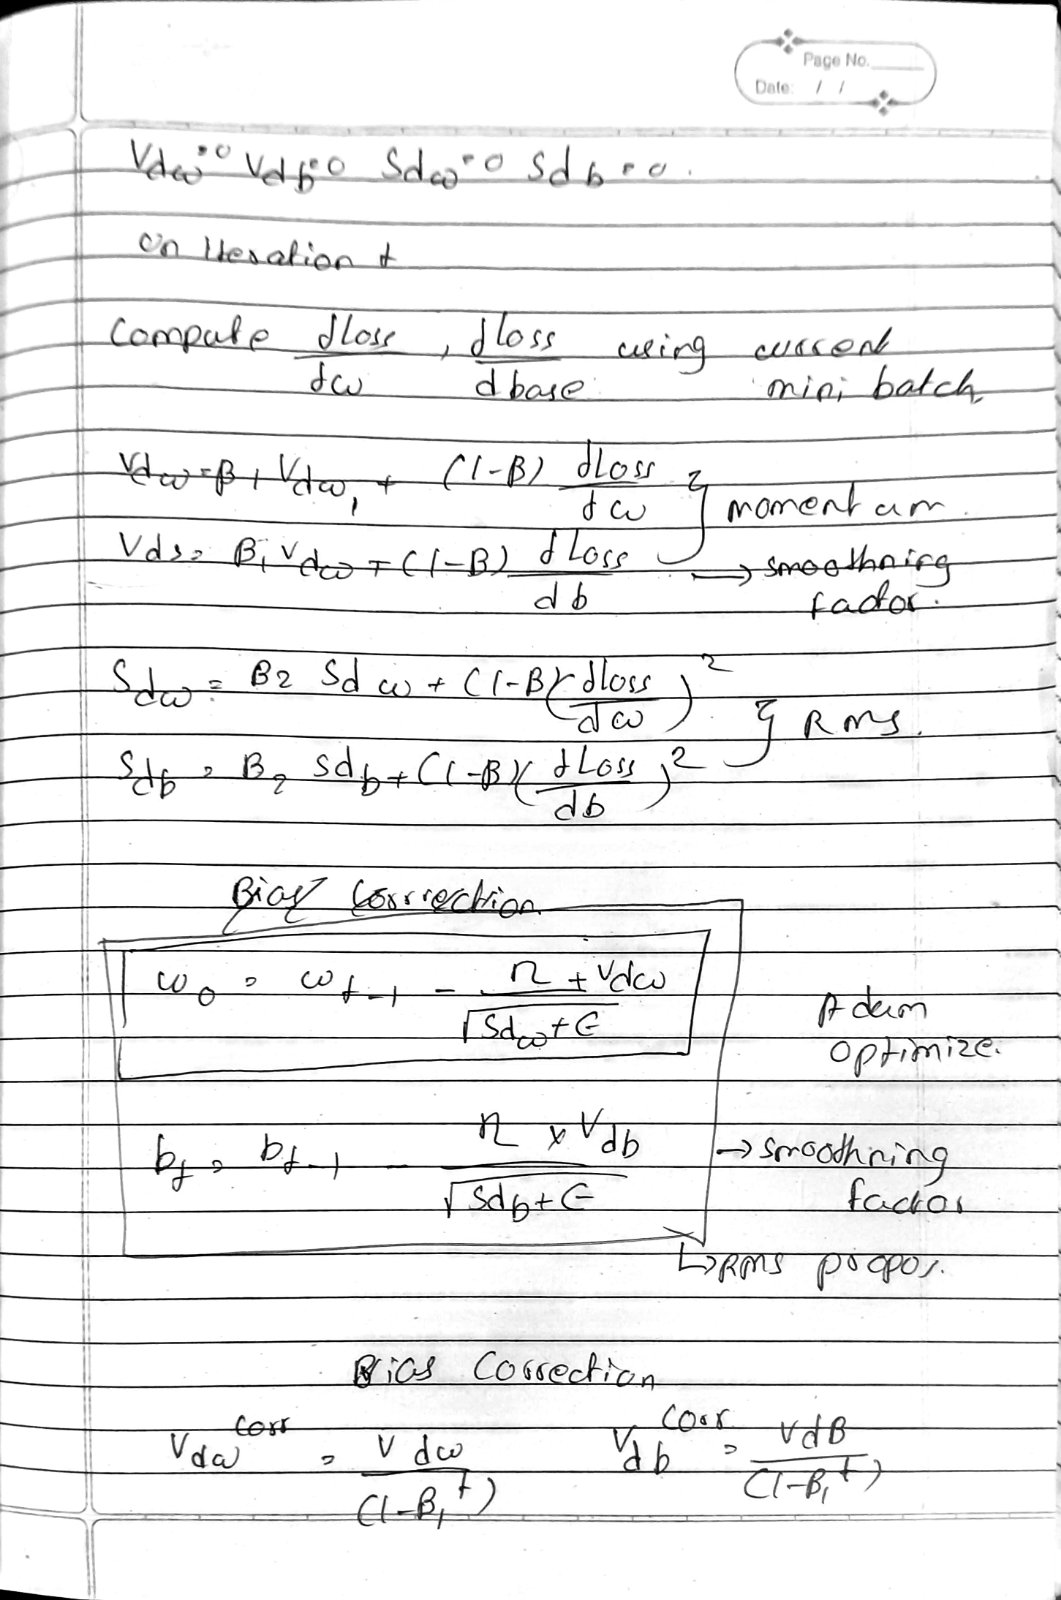 Page No.
Date: / /
Vdω = 0 Vdb = 0 Sdω = 0 Sdb = 0.
on Iteration t
Compute dLoss/dω , dloss/dbase using current mini batch
Vdω = β1 Vdω, + (1-β) dLoss/dω } momentum.
Vds = β1 Vdω + (1-β) dLoss/db → smoothning factor.
Sdω = β2 Sdω + (1-β)(dloss/dω)² } RMS.
Sdb = β2 Sdb + (1-β)(dLoss/db)²
Bias Correction
ω0 = ωt-1 - η + Vdω/√Sdω+ϵ
Adam optimize.
bt = bt-1 - η × Vdb/√Sdb+ϵ → smoothning factor
↳ RMS propos.
Bias Correction
Vdω^corr = Vdω/(1-β1^t) Vdb^corr = VdB/(1-β1^t)